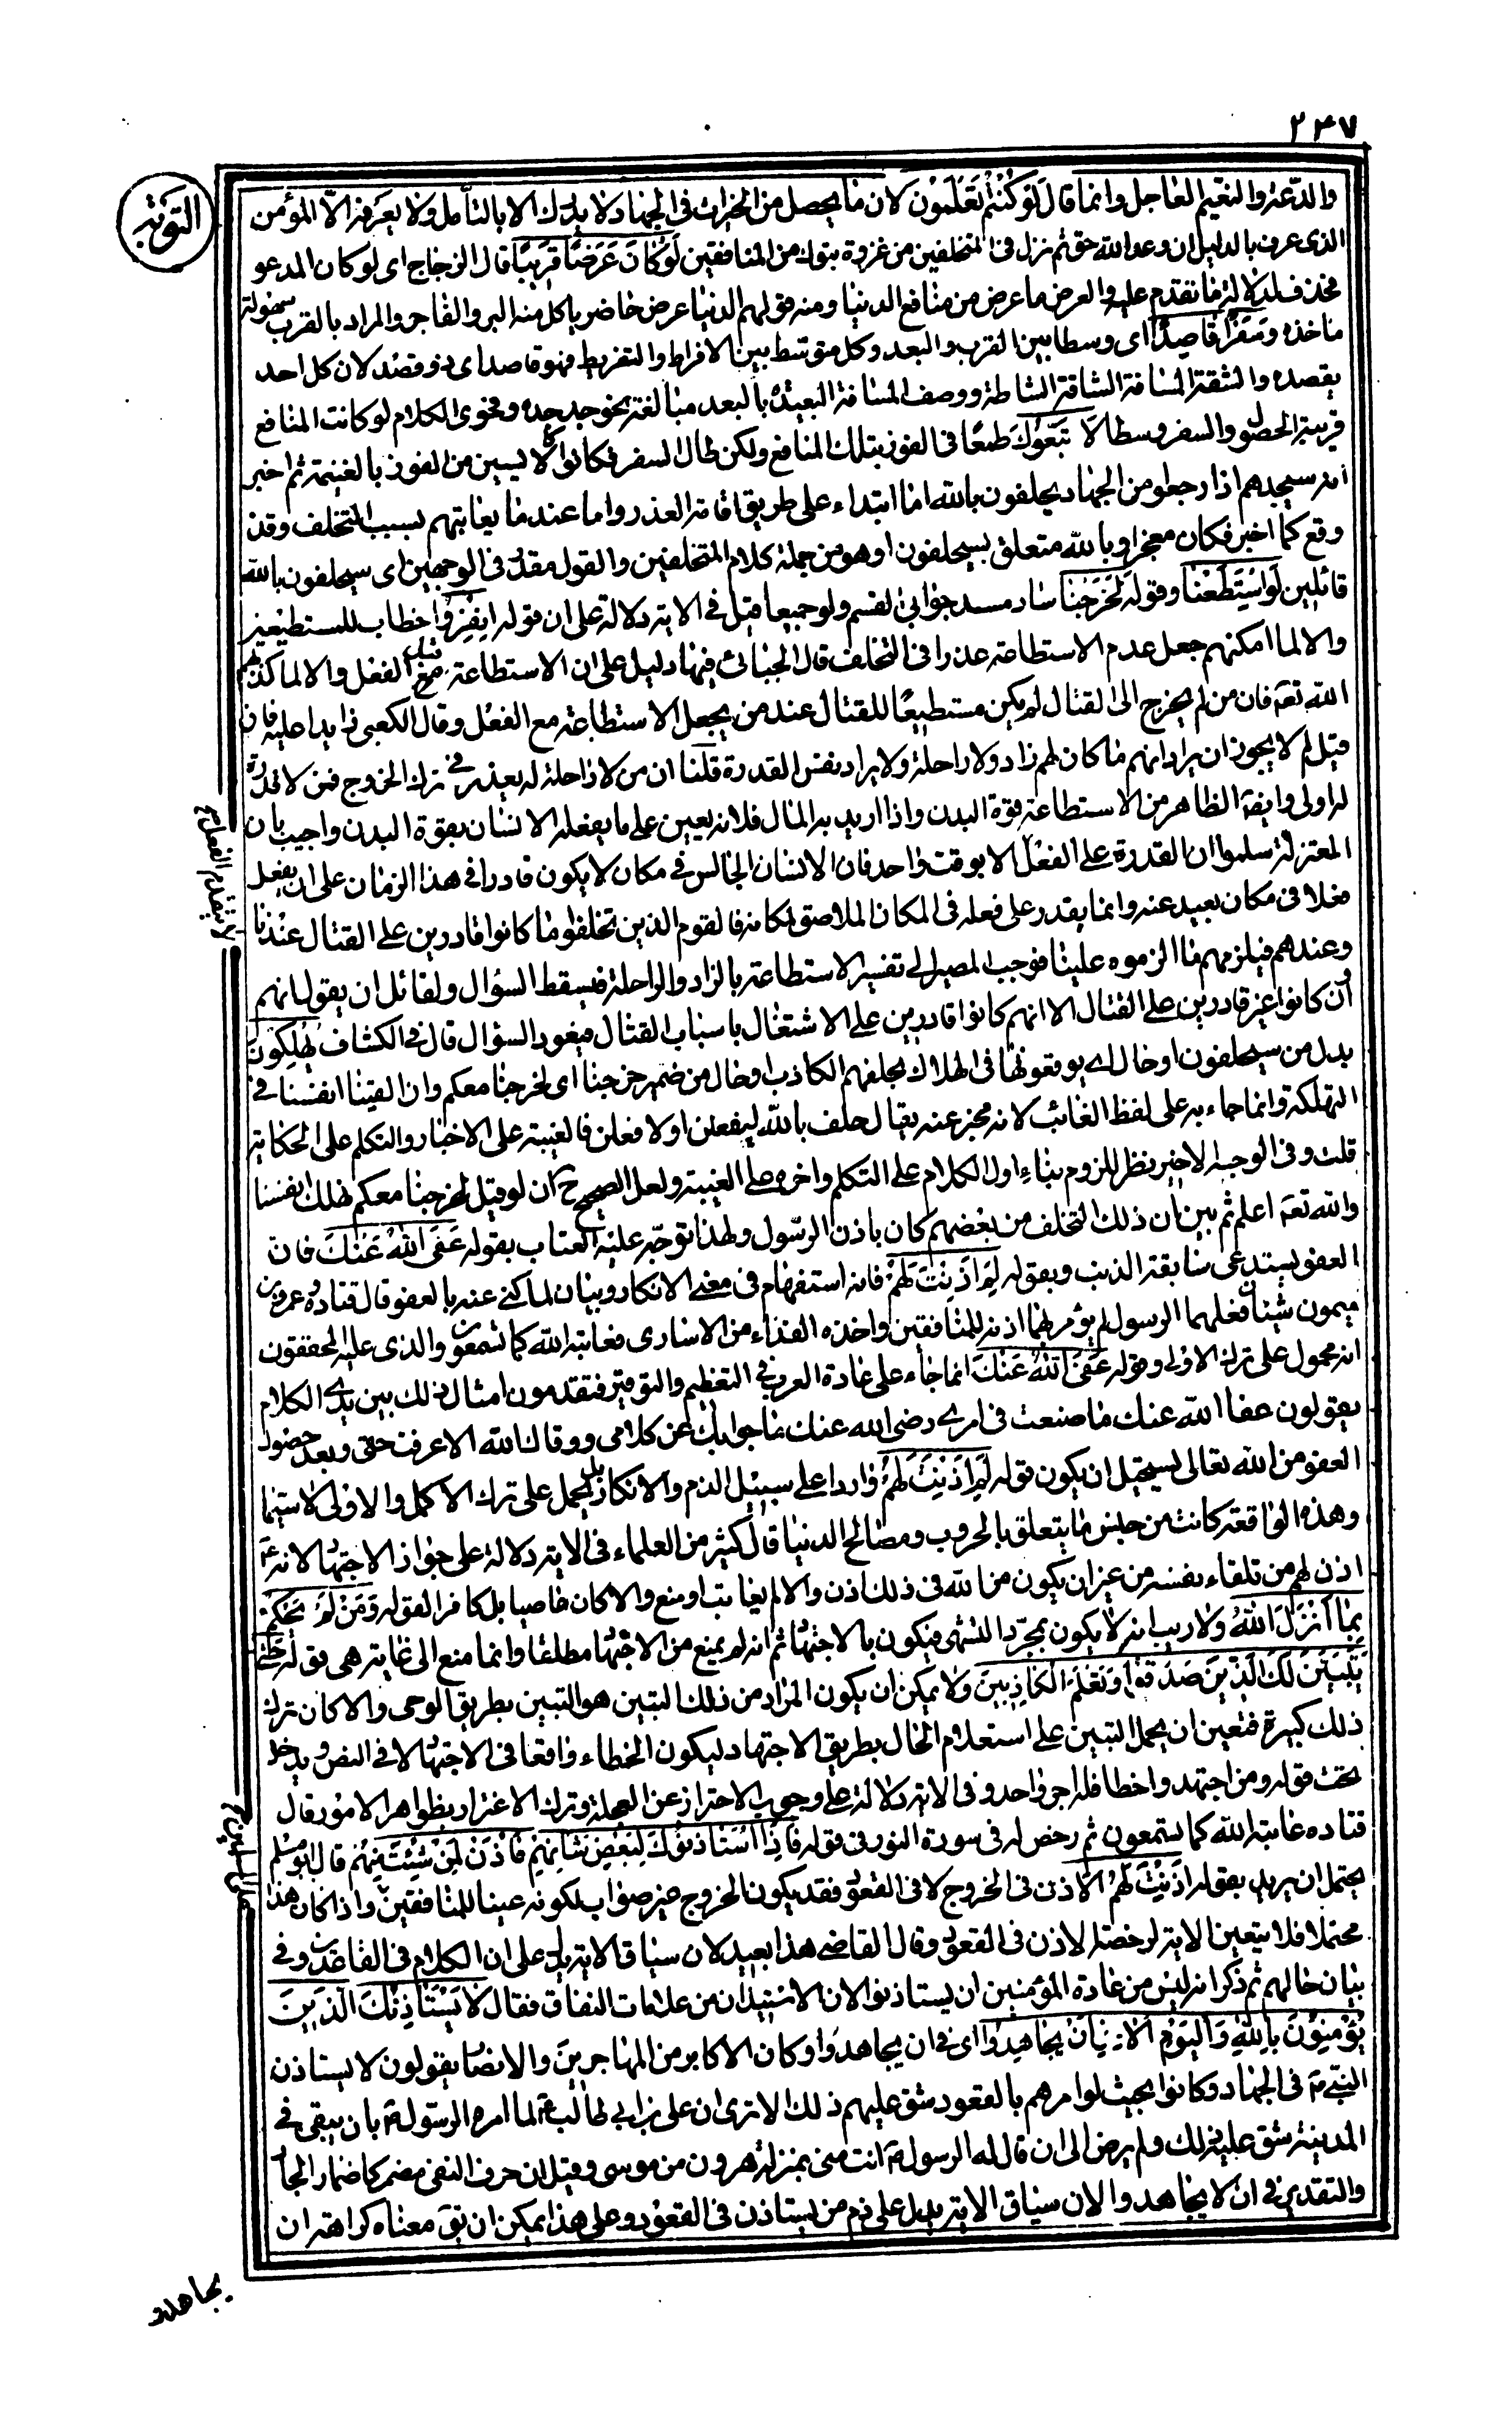 ٢٤٧
التوبة
والدعة والنعيم العاجل وانما قال لَوْ كُنْتُمْ تَعْلَمُونَ لان ما يحصل من الخيرات فى الجهاد لا يدرك الا بالتأمل ولا يعرفه الا المؤمن
الذى عرف بالدليل ان وعد الله حق ثم نزل فى المتخلفين من غزوة تبوك من المنافقين لَوْ كَانَ عَرَضًا قَرِيبًا قال الزجاج اى لو كان المدعو
محذف لدلالة ما تقدم عليه والعرض ما عرض من منافع الدنيا ومنه قولهم الدنيا عرض حاضر ياكل منه البر والفاجر والمراد بالقرب سهولة
ماخذه وَسَفَرًا قَاصِدًا اى وسطا بين القرب والبعد وكل متوسط بين الافراط والتفريط فهو قاصد اى ذو قصد لان كل احد
يقصده والشقة المسافة الشاقة الشاطة ووصف المسافة البعيدة بالبعد مبالغة نحو جد جده وفحوى الكلام لو كانت المنافع
قريبة الحصول والسفر وسطا لَاتَّبَعُوكَ طمعا فى الفوز بتلك المنافع ولكن طال السفر فكانوا كالايسين من الفوز بالغنيمة ثم اخبر
انه سيجدهم اذا رجعوا من الجهاد يحلفون بالله اما ابتداء على طريق اقامة العذر واما عند ما يعاتبهم بسبب التخلف وقد
وقع كما اخبر فكان معجزا وبالله متعلق بسيحلفون او هو من جملة كلام المتخلفين والقول مقدر فى الوجهين اى سيحلفون بالله
قائلين لَوِ اسْتَطَعْنَا وقوله لَخَرَجْنَا ساد مسد جوابى القسم ولو جميعا قيل فى الاية دلالة على ان قوله انْفِرُوا خطاب للمستطيعين
والا لما امكنهم جعل عدم الاستطاعة عذرا فى التخلف قال الجبائى فيها دليل على ان الاستطاعة قبل الفعل والا لما كذبهم
الله تعه فان من لم يخرج الى القتال لم يكن مستطيعا للقتال عند من يجعل الاستطاعة مع الفعل وقال الكعبى زايدا عليه فان
قيل لم لا يجوز ان يراد انهم ما كان لهم زاد ولا راحلة ولا يراد نفس القدرة قلنا ان من لا راحلة له يعذر فى ترك الخروج فمن لا قدرة
له اولى وايضا الظاهر من الاستطاعة قوة البدن واذا اريد به المال فلانه يعين على ما يفعله الانسان بقوة البدن واجيب بان
المعتزلة سلموا ان القدرة على الفعل الا بوقت واحد فان الانسان الجالس فى مكان لا يكون قادرا فى هذا الزمان على ان يفعل
لا يتقدم الفعل
فعلا فى مكان بعيد عنه وانما يقدر على فعله فى المكان الملاصق لمكانه فالقوم الذين تخلفوا ما كانوا قادرين على القتال عندنا
وعندهم فيلزمهم ما الزموه علينا فوجب المصير الى تفسير الاستطاعة بالزاد والراحلة فيسقط السؤال ولقائل ان يقول انهم
ان كانوا غير قادرين على القتال الا انهم كانوا قادرين على الاشتغال باسباب القتال فيعود السؤال قال فى الكشاف يُهْلِكُونَ
بدل من سيحلفون او حال اى يوقعونها فى الهلاك بحلفهم الكاذب او حال من ضمير خرجنا اى لخرجنا معكم وان القينا انفسنا فى
التهلكة وانما جاء به على لفظ الغائب لانه مخبر عنه يقال حلف بالله ليفعلن او لافعلن فالغيبة على الاخبار والتكلم على الحكاية
قلت وفى الوجه الاخير نظر للزوم بناء اول الكلام على التكلم واخره على الغيبة ولعل الصحيح ان لو قيل لخرجنا معكم نهلك انفسنا
والله تعه اعلم ثم بين ان ذلك التخلف من بعضهم كان باذن الرسول ولهذا توجه عليه العتاب بقوله عَفَى اللهُ عَنْكَ فان
العفو يستدعى سابقة الذنب وبقوله لِمَ أَذِنْتَ لَهُمْ فانه استفهام فى معنى الانكار وبيان لما كنى عنه بالعفو قال قتادة وعمرو بن
ميمون شيئان فعلهما الرسول لم يؤمر بهما اذنه للمنافقين واخذه الفداء من الاسارى فعاتبه الله كما تسمعون والذى عليه المحققون
انه محمول على ترك الاولى وقوله عَفَى اللهُ عَنْكَ انما جاء على عادة العرب فى التعظيم والتوقير فيقدمون امثال ذلك بين يدى الكلام
يقولون عفا الله عنك ما صنعت فى امرى رضى الله عنك ما جوابك عن كلامى ووقاك الله الا عرفت حقى وبعد حصول
العفو من الله تعالى يستحيل ان يكون قوله لِمَ أَذِنْتَ لَهُمْ واردا على سبيل الذم والانكار بل يحمل على ترك الاكمل والاولى لا سيما
وهذه الواقعة كانت من جنس ما يتعلق بالحروب ومصالح الدنيا قال كثير من العلماء فى الاية دلالة على جواز الاجتهاد لانه ع
اذن لهم من تلقاء نفسه من غير ان يكون من الله فى ذلك اذن والا لم يعاتب او منع والا كان عاصيا بل كافرا لقوله وَمَنْ لَمْ يَحْكُمْ
بِمَا أَنْزَلَ اللهُ ولا ريب انه لا يكون بمجرد التشهى فيكون بالاجتهاد ثم انه لم يمنع من الاجتهاد مطلقا وانما منع الى غاية هى قوله حَتَّى
يَتَبَيَّنَ لَكَ الَّذِينَ صَدَقُوا وَتَعْلَمَ الْكَاذِبِينَ ولا يمكن ان يكون المراد من ذلك التبين هو التبين بطريق الوحى والا كان ترك
ذلك كبيرة فتعين ان يحمل التبين على استعلام الحال بطريق الاجتهاد ليكون الخطاء واقعا فى الاجتهاد لا فى النص ويدخل
تحت قوله ومن اجتهد واخطا فله اجر واحد وفى الاية دلالة على وجوب الاحتراز عن العجلة وترك الاغترار بظواهر الامور قال
قتادة عاتبه الله كما تسمعون ثم رخص له فى سورة النور فى قوله فَإِذَا اسْتَأْذَنُوكَ لِبَعْضِ شَأْنِهِمْ فَأْذَنْ لِمَنْ شِئْتَ مِنْهُمْ قال ابو مسلم
يحتمل ان يريد بقوله أَذِنْتَ لَهُمْ الاذن فى الخروج لا فى القعود فقد يكون الخروج غير صواب لكونه عينا للمنافقين واذا كان هذا
محتملا فلا يتعين الاية لرخصة الاذن فى القعود وقال القاضى هذا بعيد لان سياق الاية يدل على ان الكلام فى القاعدين وفى
بيان حالهم ثم ذكر انه ليس من عادة المؤمنين ان يستاذنوا لان الاستيذان من علامات النفاق فقال لَا يَسْتَأْذِنُكَ الَّذِينَ
يُؤْمِنُونَ بِاللهِ وَالْيَوْمِ الْآخِرِ أَنْ يُجَاهِدُوا اى فى ان يجاهدوا وكان الاكابر من المهاجرين والانصار يقولون لا يستاذن
النبى ص فى الجهاد وكانوا بحيث لو امرهم بالقعود شق عليهم ذلك الا ترى ان على بن ابى طالب ع لما امره الرسول ص بان يبقى فى
المدينة شق عليه ذلك ولم يرض الى ان قال له الرسول ص انت منى بمنزلة هرون من موسى وقيل ان حرف النفى مضمر كاضمار الجار
والتقدير فى ان لا يجاهدوا لان سياق الاية يدل على ذم من يستاذن فى القعود وعلى هذا يمكن ان يق معناه كراهة ان
يجاهدوا